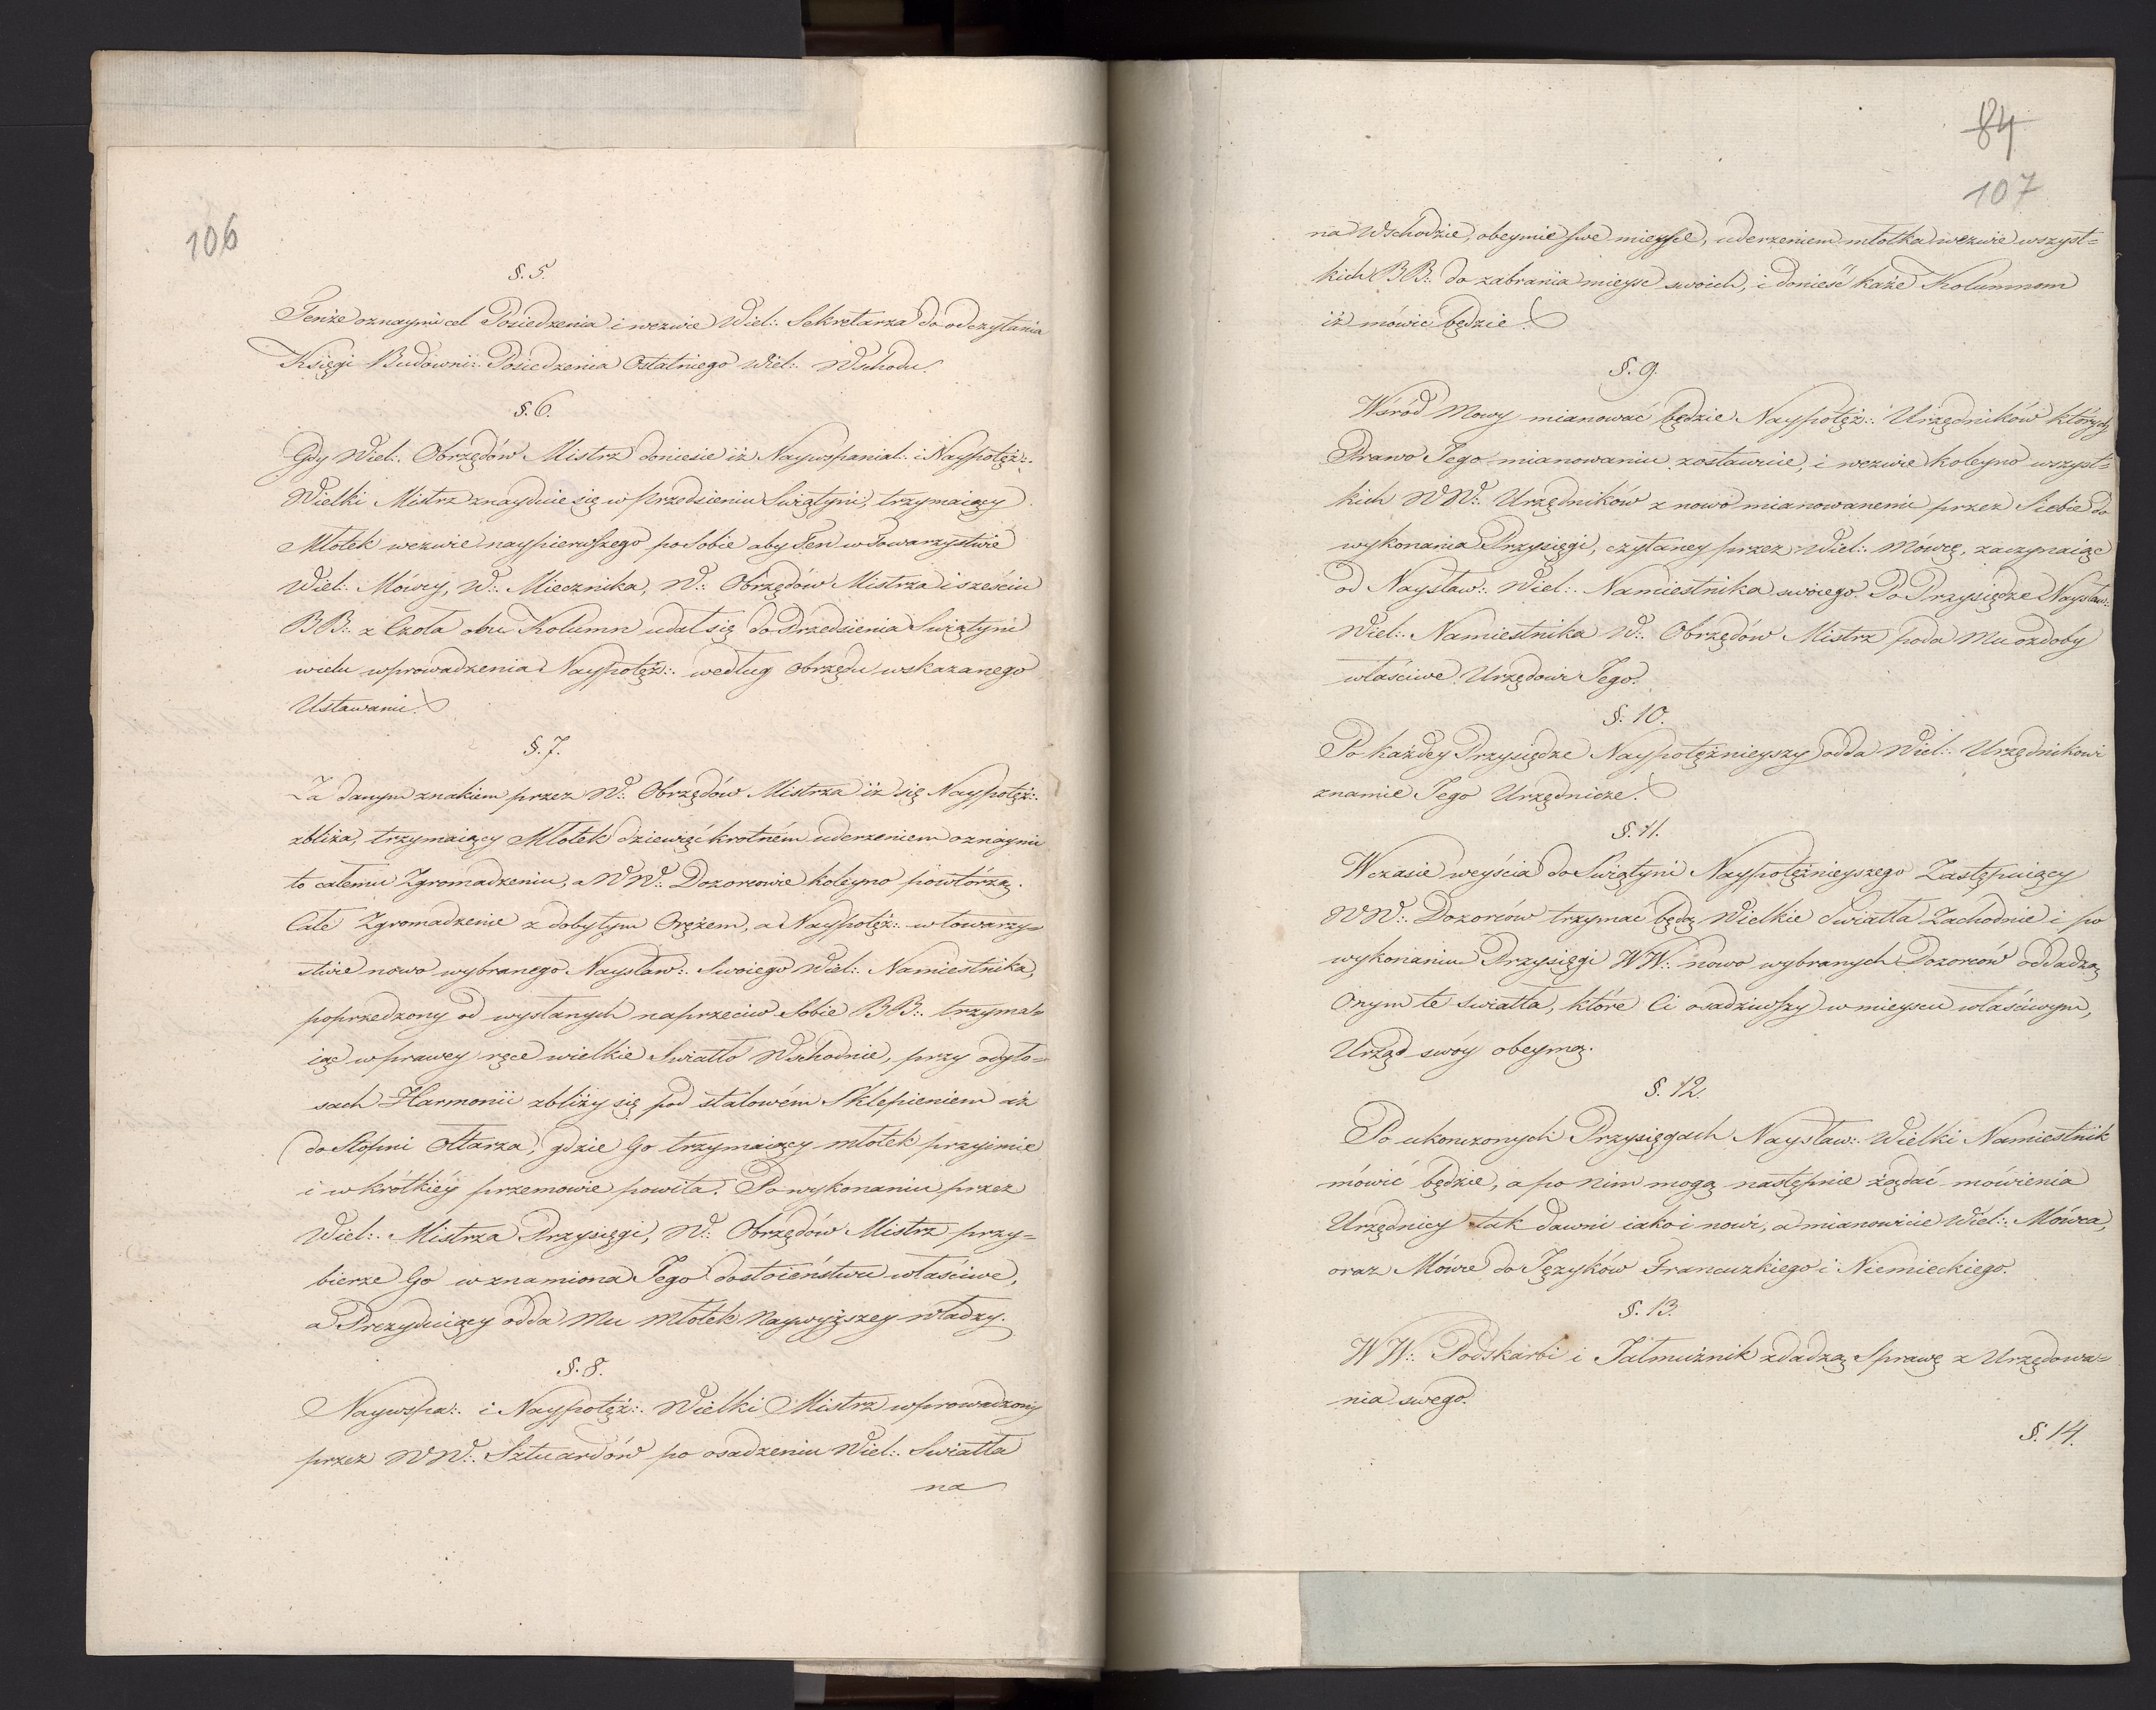 106
§. 5.
Tenże oznaymi cel Posiedzenia i wezwie Wiel:. Sekretarza do odczytania
Księgi Budowni:. Posiedzenia Ostatniego Wiel:. Wschodu.
§. 6.
Gdy Wiel:. Obrzędów Mistrz doniesie iż Naywspanial:. i Naypotęż:.
Wielki Mistrz znayduie się w Przedsieniu Swiątyni, trzymaiący
Młotek wezwie naypierwszego po Sobie aby Ten w Towarzystwie
Wiel:. Mówcy, W:. Miecznika, W:. Obrzędów Mistrza i sześciu
BB:. z Czoła obu Kolumn udał się do Przedsienia Swiątyni
w celu wprowadzenia Naypotęż:. według obrzędu wskazanego
Ustawami.
§. 7.
Za danym znakiem przez W:. Obrzędów Mistrza iż się Naypotęż:.
zbliża, trzymaiący Młotek dziewięć krotném uderzeniem oznaymi
to całemu Zgromadzeniu, a WW:. Dozorcowie koleyno powtórzą.
Całe Zgromadzenie z dobytym Orężem, a Naypotęż:. w towarzy=
stwie nowo wybranego Naysław:. Swoiego Wiel:. Namiestnika,
poprzedzony od wysłanych naprzeciw Sobie BB:. trzyma=
iąc w prawey ręce wielkie Swiatło Wschodnie, przy odgło=
sach Harmonii zbliży się pod stalowém Sklepieniem aż
do Stopni Ołtarza, gdzie Go trzymaiący młotek przyimie
i w krótkiéy przemowie powita. Po wykonaniu przez
Wiel:. Mistrza Przysięgi, W:. Obrzędów Mistrz przy=
bierze Go w znamiona Jego dostoieństwu właściwe,
a Prezyduiący odda Mu Młotek Naywyższey władzy.
§. 8.
Naywspa:. i Naypotęż:. Wielki Mistrz wprowadzony
przez WW:. Sztuardów po osadzeniu Wiel:. Swiatła
na
84
107
na Wschodzie, obeymie swe mieysce, uderzeniem młotka wezwie wszyst=
kich BB:. do zabrania mieysc swoich, i donieść każe Kolumnom
iż mówić będzie.
§. 9.
Wśród Mowy mianować będzie Naypotęż:. Urzędników których
Prawo Jego mianowaniu zostawuie, i wezwie koleyno wszyst=
kich WW:. Urzędników z nowo mianowanemi przez Siebie do
wykonania Przysięgi, czytaney przez Wiel:. Mówcę, zaczynaiąc
od Naysław:. Wiel:. Namiestnika swoiego. Po Przysiędze Naysław:.
Wiel:. Namiestnika W:. Obrzędów Mistrz poda Mu ozdoby
właściwe Urzędowi Jego.
§. 10.
Po każdey Przysiędze Naypotężnieyszy odda Wiel:. Urzędnikowi
znamie Jego Urzędnicze.
§. 11.
W czasie weyścia do Swiątyni Naypotężnieyszego Zastępuiący
WW:. Dozorców trzymać będą Wielkie Swiatła Zachodnie i po
wykonaniu Przysięgi WW:. nowo wybranych Dozorców oddadzą
Onym te swiatła, które Ci osadziwszy w mieyscu właściwym,
Urząd swóy obeymą.
§. 12.
Po ukończonych Przysięgach Naysław:. Wielki Namiestnik
mówić będzie, a po Nim mogą następnie żądać mówienia
Urzędnicy tak dawni iako i nowi, a mianowicie Wiel:. Mówca,
oraz Mówce do Języków Francuzkiego i Niemieckiego.
§. 13.
WW:. Podskarbi i Jałmużnik zdadzą Sprawę z Urzędowa=
nia swego.
§. 14.